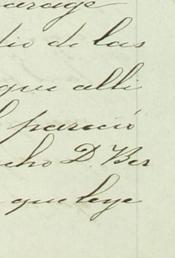 arage
dio de las
que alli
pareció
cho D. Ber
que leye